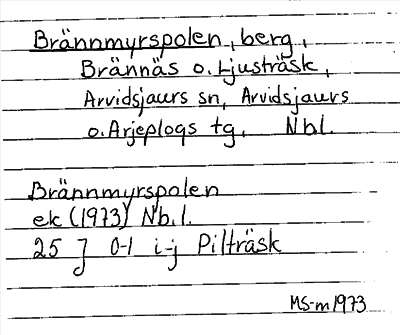 Brännmyrspolen, berg,
Brännäs o. Ljusträsk,
Arvidsjaurs sn, Arvidsjaurs
o. Arjeplogs tg, Nbl.
Brännmyrspolen
ek (1973) Nb.l.
25 J 0-1 i-j Pilträsk
MS-m 1973